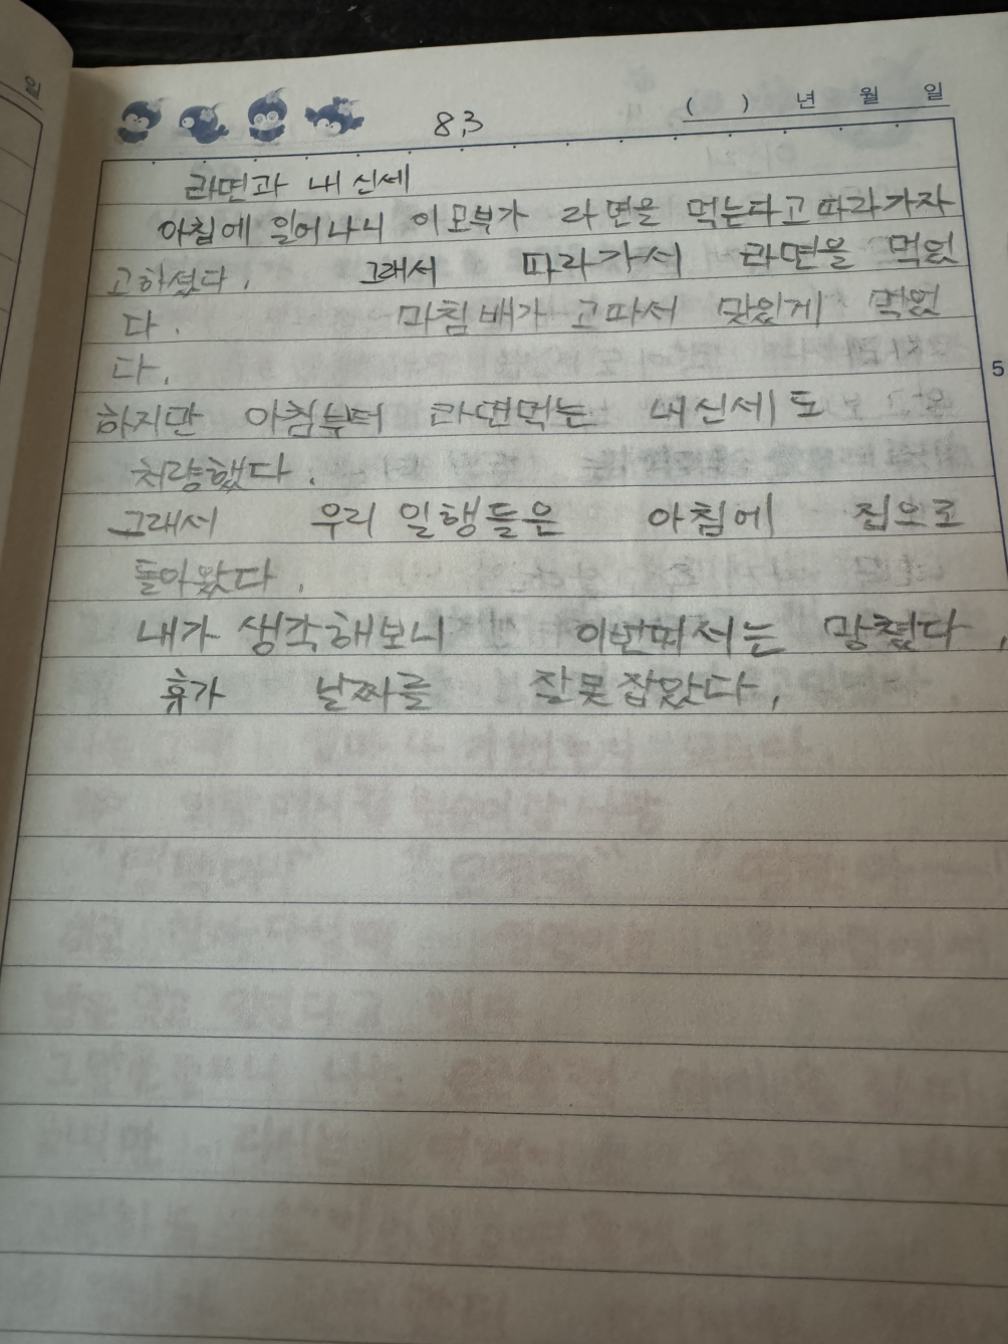 일
8.3
( ) 년 월 일
라면과 내 신세
아침에 일어나니 이모부가 라면을 먹는다고 따라가자
고하셨다. 그래서 따라가서 라면을 먹었
다. 마침 배가 고파서 맛있게 먹었
다.
5
하지만 아침부터 라면먹는 내신세도
처량했다.
그래서 우리 일행들은 아침에 집으로
돌아왔다.
내가 생각해보니 이번피서는 망쳤다.
휴가 날짜를 잘못잡았다.